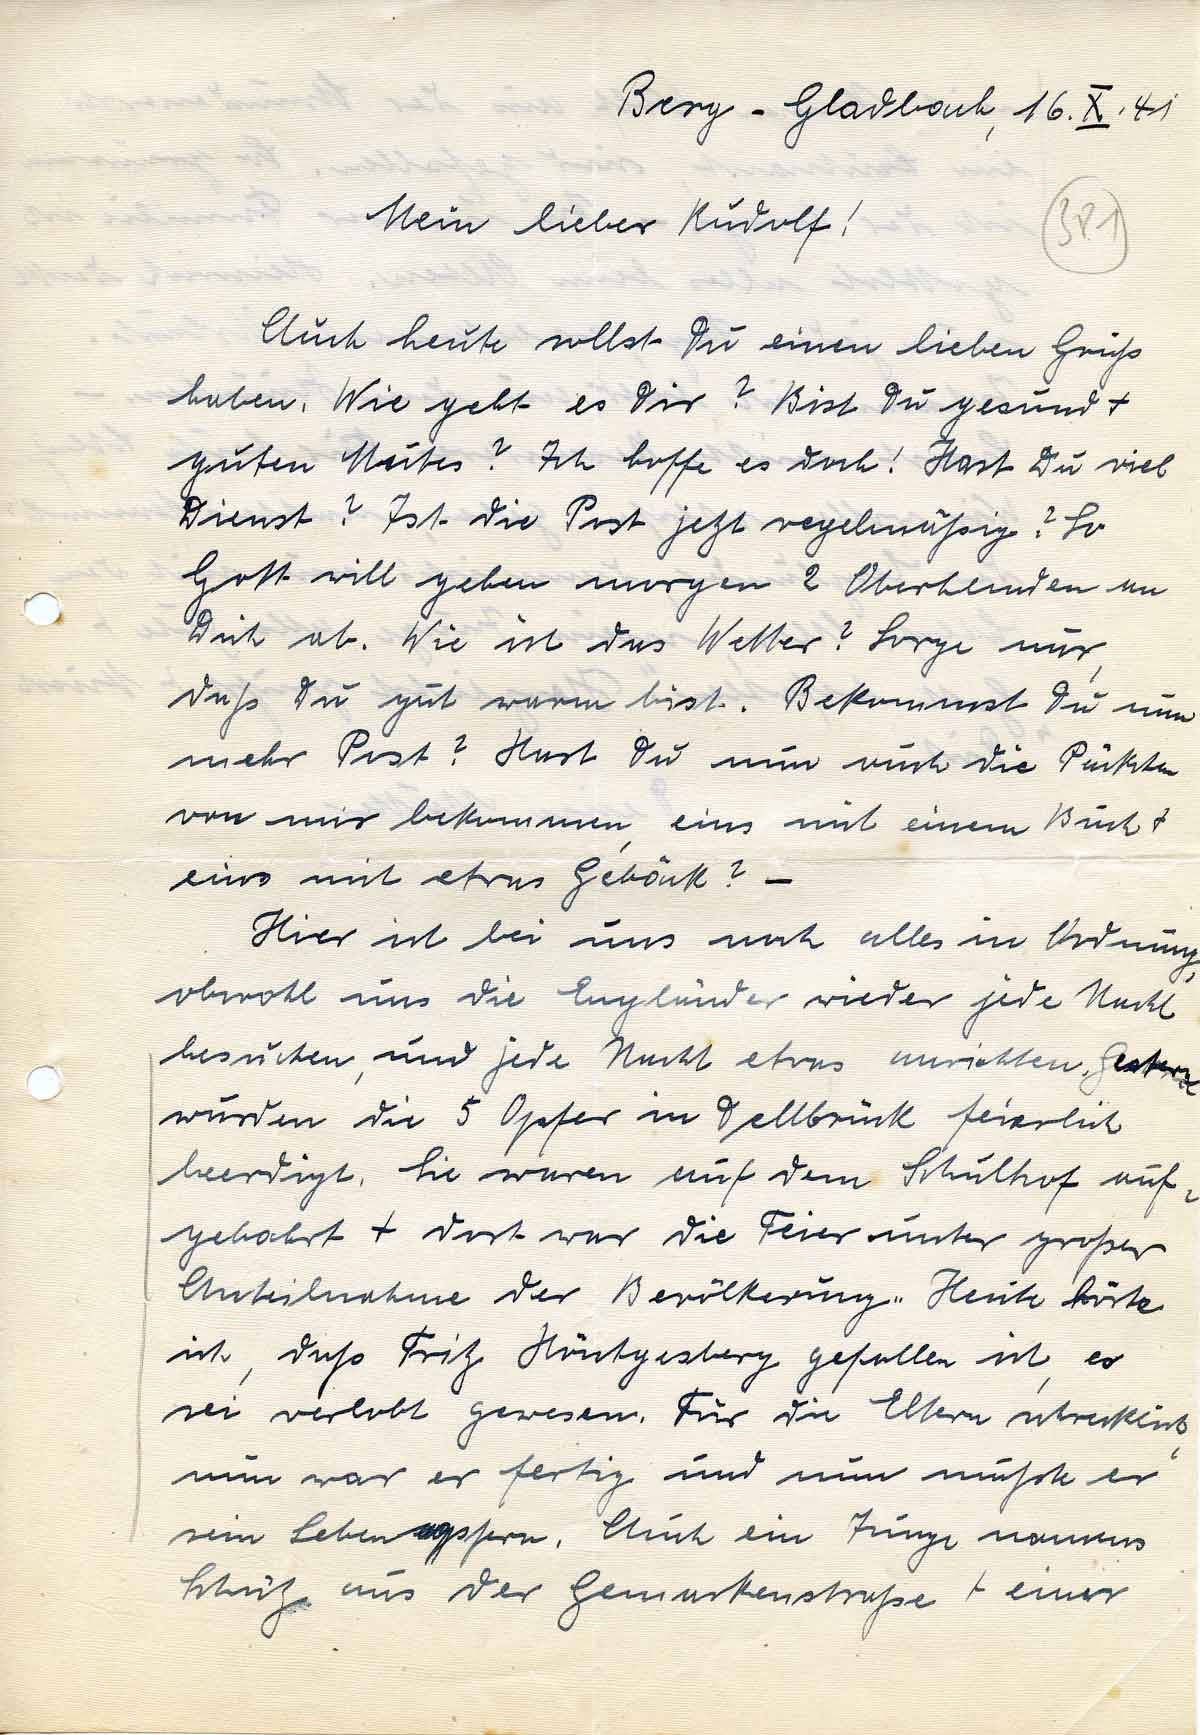 Berg-Gladbach, 16.X.41
Mein lieber Rudolf!
381
Auch heute sollst Du einen lieben Gruß
haben. Wie geht es Dir? Bist Du gesund +
guten Mutes? Ich hoffe es doch! Hast Du viel
Dienst? Ist die Post jetzt regelmäßig? So
Gott will gehen morgen 2 Oberhemden an
Dich ab. Wie ist das Wetter? Sorge nur,
daß Du gut warm bist. Bekommst Du nun
mehr Post? Hast Du nun auch die Päckchen
von mir bekommen, eins mit einem Buch +
eins mit etwas Gebäck? —
Hier ist bei uns noch alles in Ordnung,
obwohl uns die Engländer wieder jede Nacht
besuchen, und jede Nacht etwas anrichten. Gestern
wurden die 5 Opfer in Dellbrück feierlich
beerdigt. Sie waren auf dem Schulhof auf-
gebahrt + dort war die Feier unter großer
Anteilnahme der Bevölkerung. Heute hörte
ich, daß Fritz gefallen ist, er
sei verlobt gewesen. Für die Eltern schrecklich,
nun war er fertig und nun mußte er
sein Leben opfern. Auch ein Junge namens
Schütz aus der Gemarkenstraße + einer